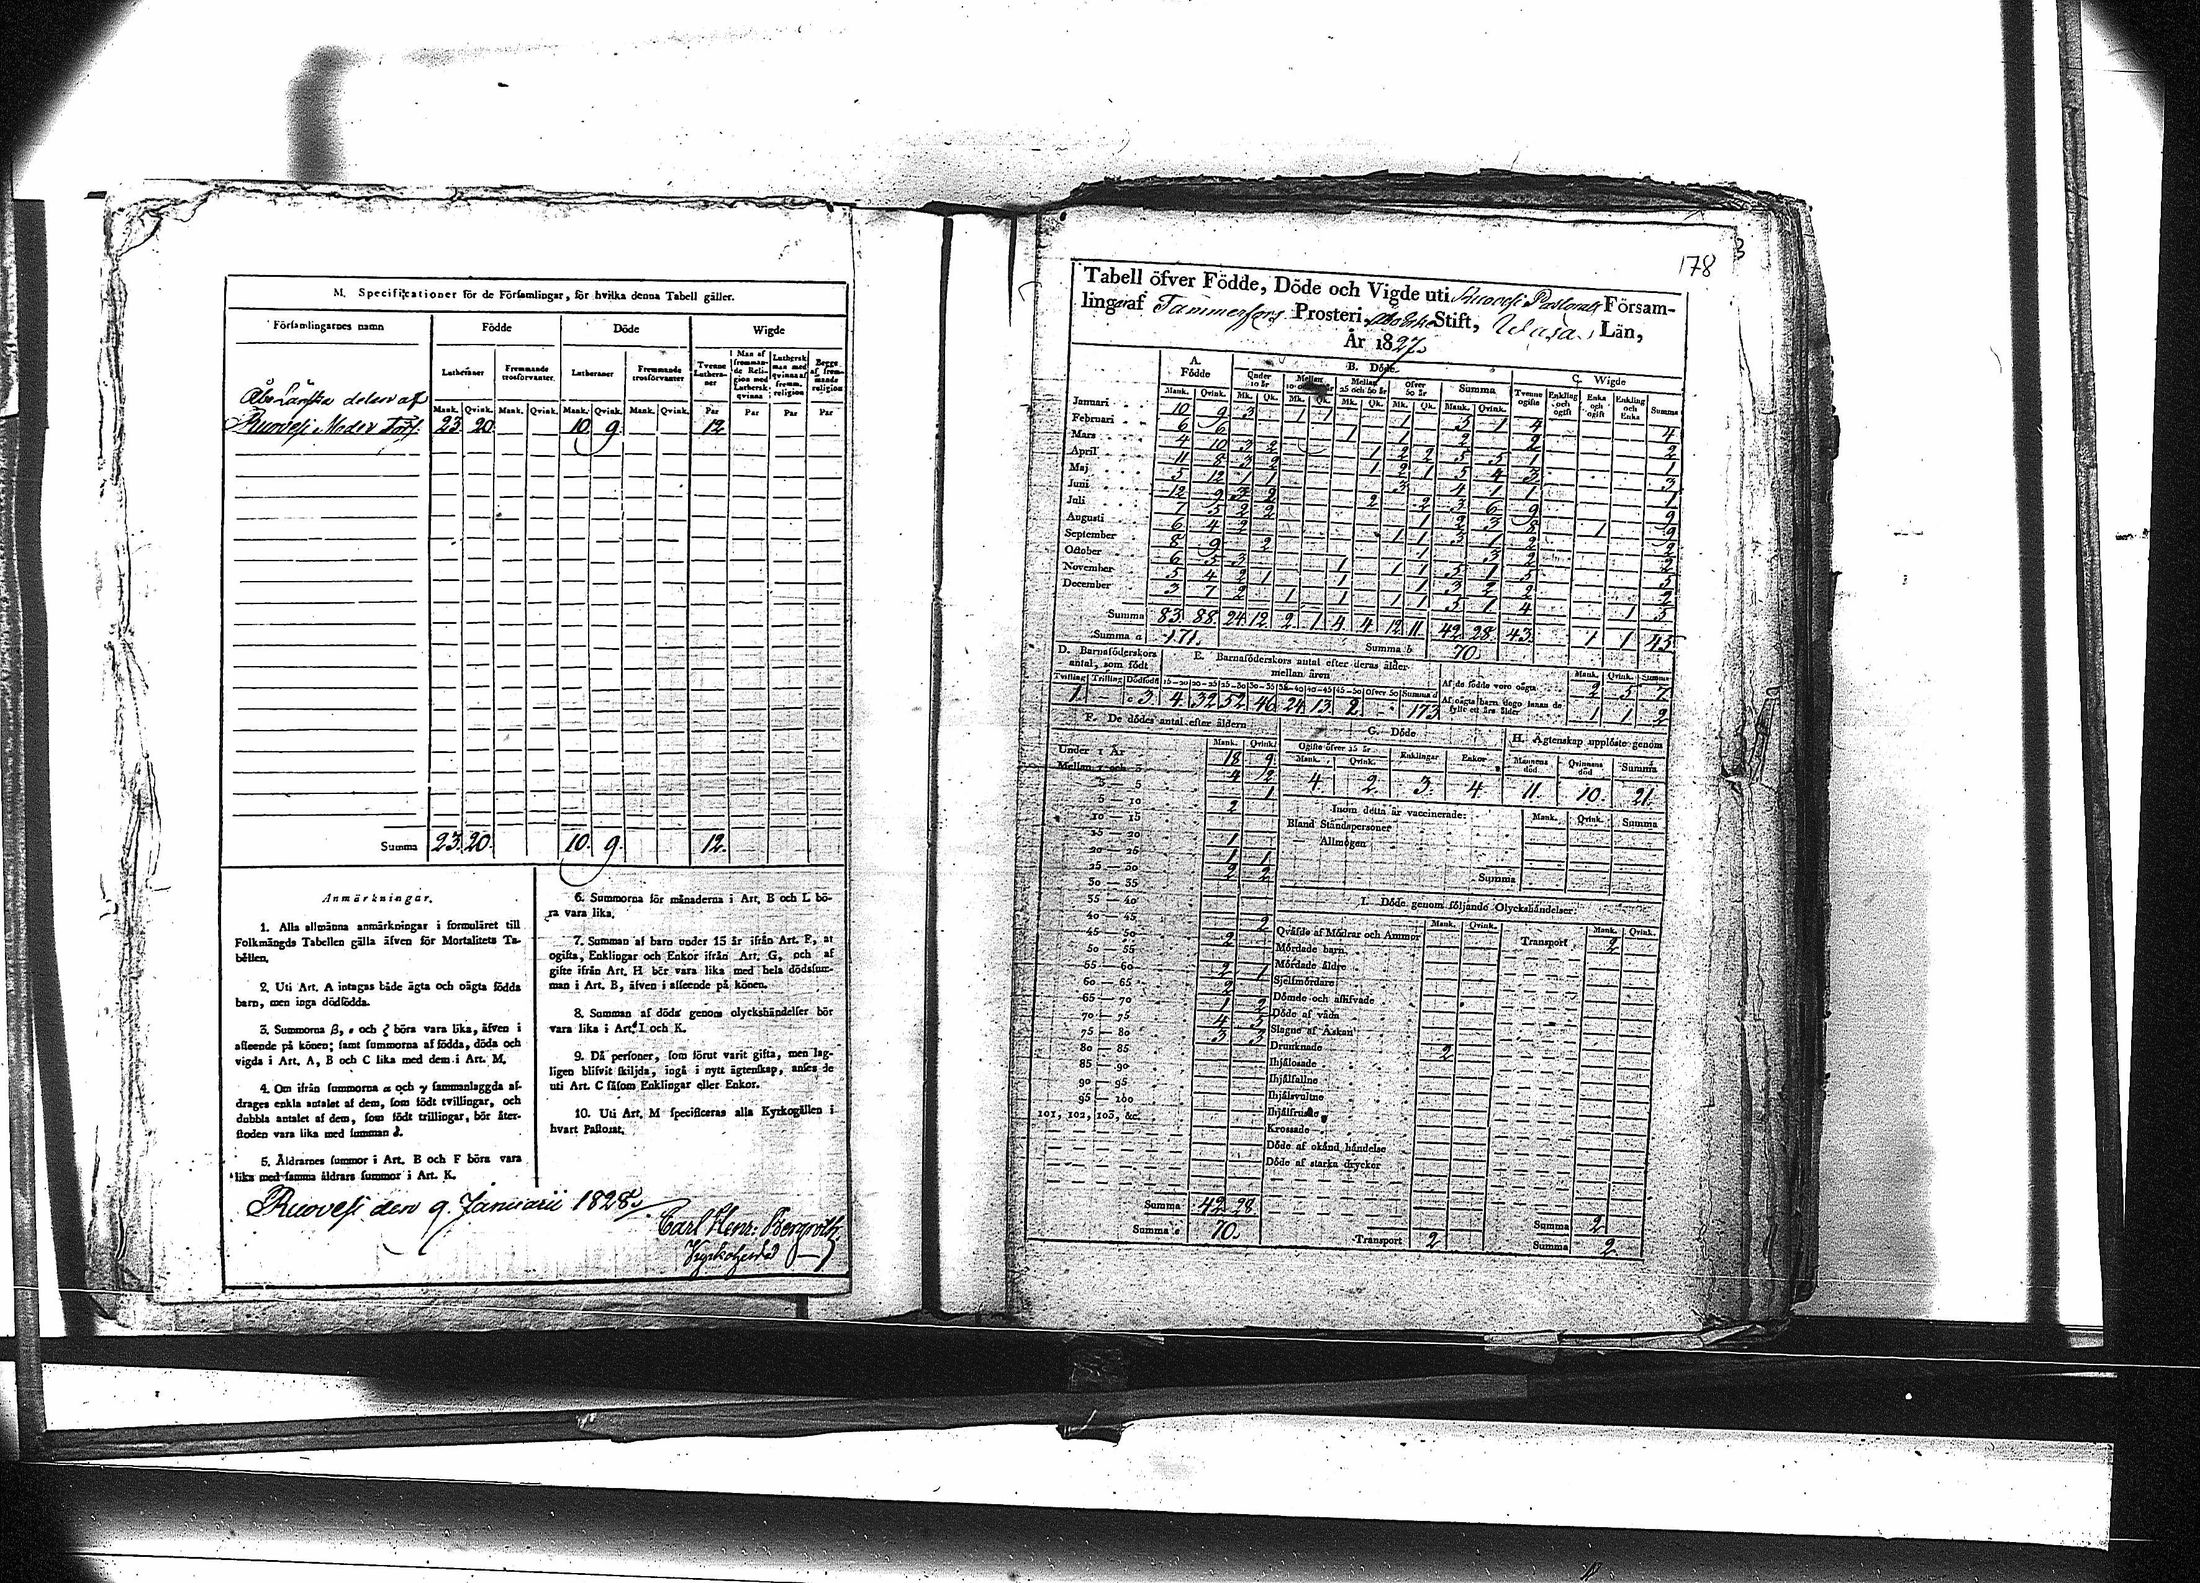 M. Specificationer för de Församlingar, för hvilka denna Tabell gäller.
Församlingarnes namn Födde Döde Wigde
Lutheraner Fremmande trosförvanter Lutheraner Fremmande trosförvanter Tvenne Lutheraner Man af fremmande Religion med Luthersk qvinna Luthersk man med qvinna af fremm. religion Begge af fremmande religion
Mank. Qvink. Mank. Qvink. Mank. Qvink. Mank. Qvink. Par Par Par Par
Åbo Länska delen af
Ruovesi Moder Förs. 23 20 10 9 12
Summa 23. 20. 10. 9. 12.
Anmärkningar.
1. Alla allmänna anmärkningar i formuläret till
Folkmängds Tabellen gälla äfven för Mortalitets Ta-
bellen.
2. Uti Art. A intagas både ägta och oägta födda
barn, men inga dödfödda.
3. Summorna β, ε och ζ böra vara lika, äfven i
afseende på könen; samt summorna af födda, döda och
vigda i Art. A, B och C lika med dem i Art. M.
4. Om ifrån summorna α och γ sammanlaggda af-
drages enkla antalet af dem, som födt tvillingar, och
dubbla antalet af dem, som födt trillingar, bör åter-
stoden vara lika med summan δ.
5. Åldrarnes summor i Art. B och F böra vara
lika med samma åldrars summor i Art. K.
6. Summorna för månaderna i Art. B och L bö-
ra vara lika.
7. Summan af barn under 15 år ifrån Art. F, at
ogifta, Enklingar och Enkor ifrån Art. G, och af
gifte ifrån Art. H bör vara lika med hela dödssum-
man i Art. B, äfven i afseende på könen.
8. Summan af döda genom olyckshändelser bör
vara lika i Art. I och K.
9. Då personer, som förut varit gifta, men lag-
ligen blifvit skiljda, ingå i nytt ägtenskap, anses de
uti Art. C såsom Enklingar eller Enkor.
10. Uti Art. M specificeras alla Kyrkogällen i
hvart Pastorat.
Ruovesi den 9 Januarii 1828.
Carl Henr: Bergroth
Kyrkoherde
178
Tabell öfver Födde, Döde och Vigde uti Ruovesi Pastorats Försam-
lingar af Tammerfors Prosteri, Åbo Erke Stift, Wasa Län,
År 1827.
A. Födde B. Döde C. Wigde
Under 10 år Mellan Mellan 25 och 50 år Öfver 50 år Summa Tvenne ogifte Enkling och ogift Enka och ogift Enkling och Enka Summa
Mank. Qvink. Mk. Qk. Mk. Qk. Mk. Qk. Mk. Qk. Mank. Qvink.
Januari 10 9 3 1 1 1 5 1 4 4
Februari 6 6 1 1 2 2 2
Mars 4 10 3 2 1 2 2 5 5 1 1
April 11 8 3 2 1 2 1 5 4 3 3
Maj 5 12 1 1 3 4 1 1 1
Juni 12 9 3 2 2 2 3 6 9 9
Juli 7 5 2 2 1 2 3 8 1 9
Augusti 6 4 2 1 1 3 1 2 2
September 8 9 2 1 3 2 2
October 6 5 3 1 1 1 5 1 5 5
November 5 4 2 1 1 1 3 2 2 2
December 3 7 2 1 1 1 1 5 1 4 1 5
Summa 83. 88. 24. 12. 2. 1 4. 4. 12. 11. 42. 28. 43. 1 1 45
Summa a 171. Summa b 70.
D. Barnaföderskors antal, som födt
E. Barnaföderskors antal efter deras ålder mellan åren
Tvilling Trilling Dödfödt 15-20 20-25 25-30 30-35 35-40 40-45 45-50 Öfver 50 Summa d
1 — 3. 4. 32 52 46 24 13 2. — 173
Mank. Qvink. Summa
Af de födde voro oägta 2 5 7
Af oägta barn dogo innan de fyllt ett års ålder 1 1 2
F. De dödes antal efter åldern
Mank. Qvink.
Under 1 År 18 9
Mellan 1 och 3 4 2
3 — 5 1
5 — 10 2
10 — 15
15 — 20 1
20 — 25 1 1
25 — 30 2 2
30 — 35
35 — 40
40 — 45 2
45 — 50 2
50 — 55
55 — 60 2 1
60 — 65 2
65 — 70 1 2
70 — 75 4 5
75 — 80 3 3
80 — 85
85 — 90
90 — 95
95 — 100
101, 102, 103, &c.
Summa 42 28
Summa e 70.
G. Döde
Ogifte öfver 15 år Enklingar Enkor
Mank. Qvink.
4. 2. 3. 4.
H. Ägtenskap upplöste genom
Mannens död Qvinnans död Summa
11. 10. 21.
Inom detta år vaccinerade: Mank. Qvink. Summa
Bland Ståndspersoner
— Allmogen
Summa
I. Döde genom följande Olyckshändelser:
Mank. Qvink. Mank. Qvink.
Qväfde af Mödrar och Ammor Transport 2
Mördade barn
Mördade äldre
Sjelfmördare
Dömde och aflifvade
Döde af våda
Slagne af Åskan
Drunknade 2
Ihjälosade
Ihjälfallne
Ihjälsvultne
Ihjälfrusne
Krossade
Döde af okänd händelse
Döde af starka drycker
Summa 2.
Transport 2 Summa 2.